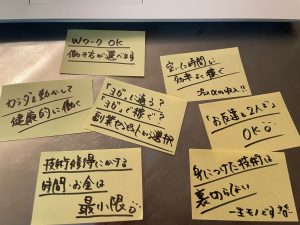 Wワーク OK
働き方が選べます
空いた時間に
効率よく稼ぐ
カラダを動かして
健康的に働く
「3G」で通う?
「3G」で稼ぐ?
副業
から選択
「お友達と2人で」
OK
技術修得にかける
時間・お金は
最小限
身につけた技術は
裏切らない
一生モノです